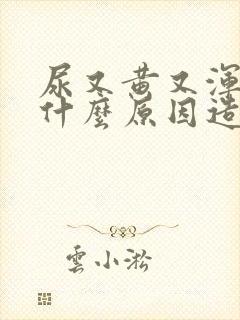 尿又黄又渾
什麼原因造
雲小淞